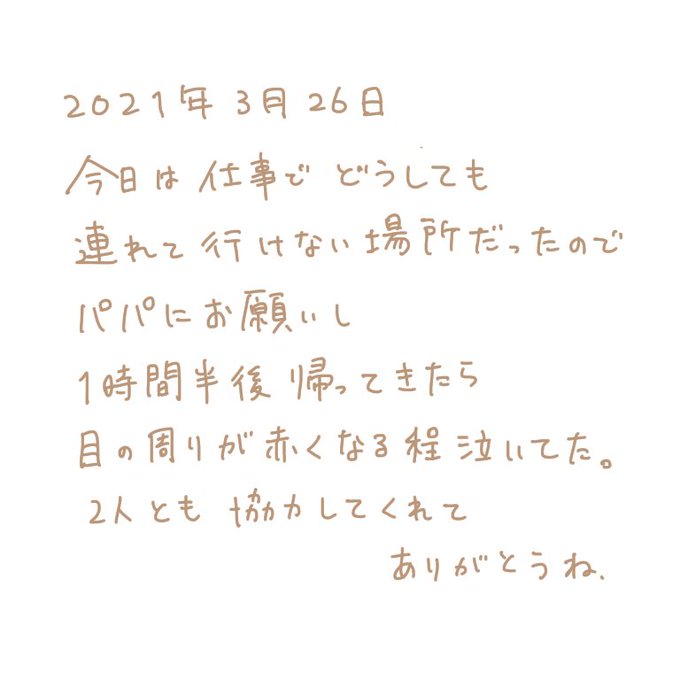 2021年3月26日
今日は仕事でどうしても
連れて行けない場所だったので
パパにお願いし
1時間半後帰ってきたら
目の周りが赤くなる程泣いてた。
2人とも協力してくれて
ありがとうね、